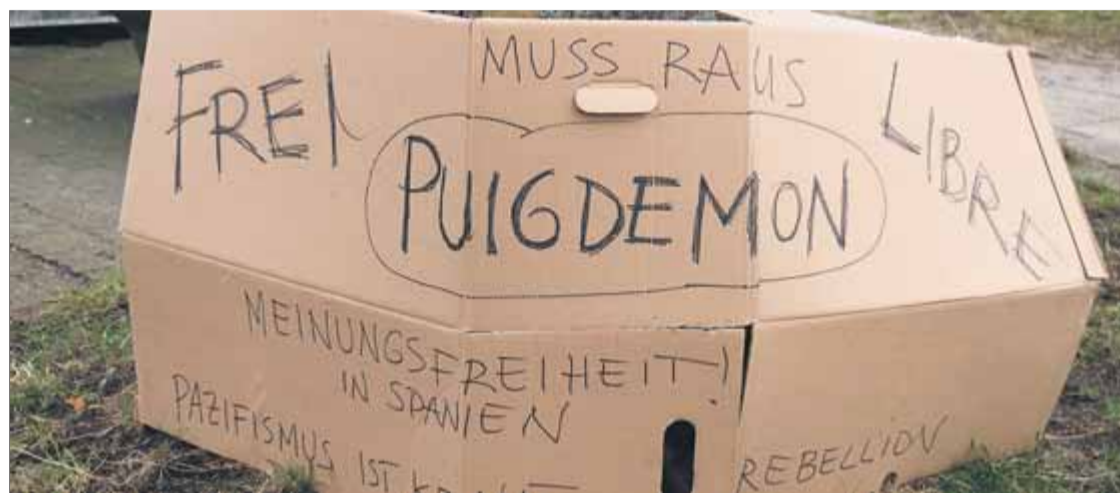 MUSS RAUS
FREI
PUIGDEMON
LIBRE
MEINUNGSFREIHEIT!
IN SPANIEN
PAZIFISMUS IST
REBELLION